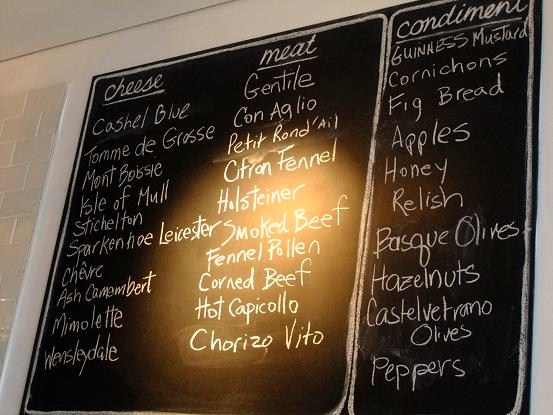 cheese
Cashel Blue
Tomme de Grosse
Mont Boissie
Isle of Mull
Stichelton
Sparkenhoe Leicester
Chèvre
Ash Camembert
Mimolette
Wensleydale
meat
Gentile
Con Aglio
Petit Rond'Ail
Citron Fennel
Holsteiner
Smoked Beef
Fennel Pollen
Corned Beef
Hot Capicollo
Chorizo Vito
condiment
GUINNESS Mustard
Cornichons
Fig Bread
Apples
Honey
Relish
Basque Olives
Hazelnuts
Castelvetrano
Olives
Peppers